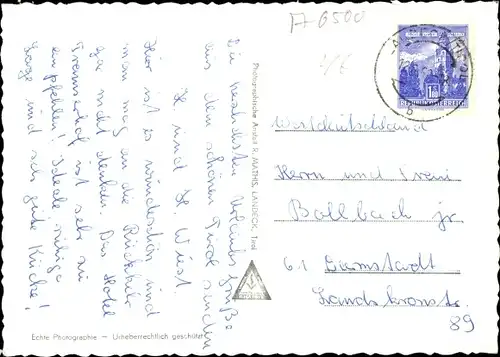 A 6500
Die herzlichsten Urlaubsgrüße
aus dem schönen Tirol senden
H. und H. Wüst.
Hier ist es wunderschön und
man mag an die Rückkehr
gar nicht denken. Das Hotel
Trammerhof ist sehr zu
empfehlen! Ideale ruhige
Lage und sehr gute Küche!
Photographische Anstalt R. MATHIS, LANDECK, Tirol
REPUBLIK ÖSTERREICH
1.80
Westdeutschland
Herrn und Frau
Bollbach jr.
61 Darmstadt
Landskronstr.
89
Echte Photographie — Urheberrechtlich geschützt